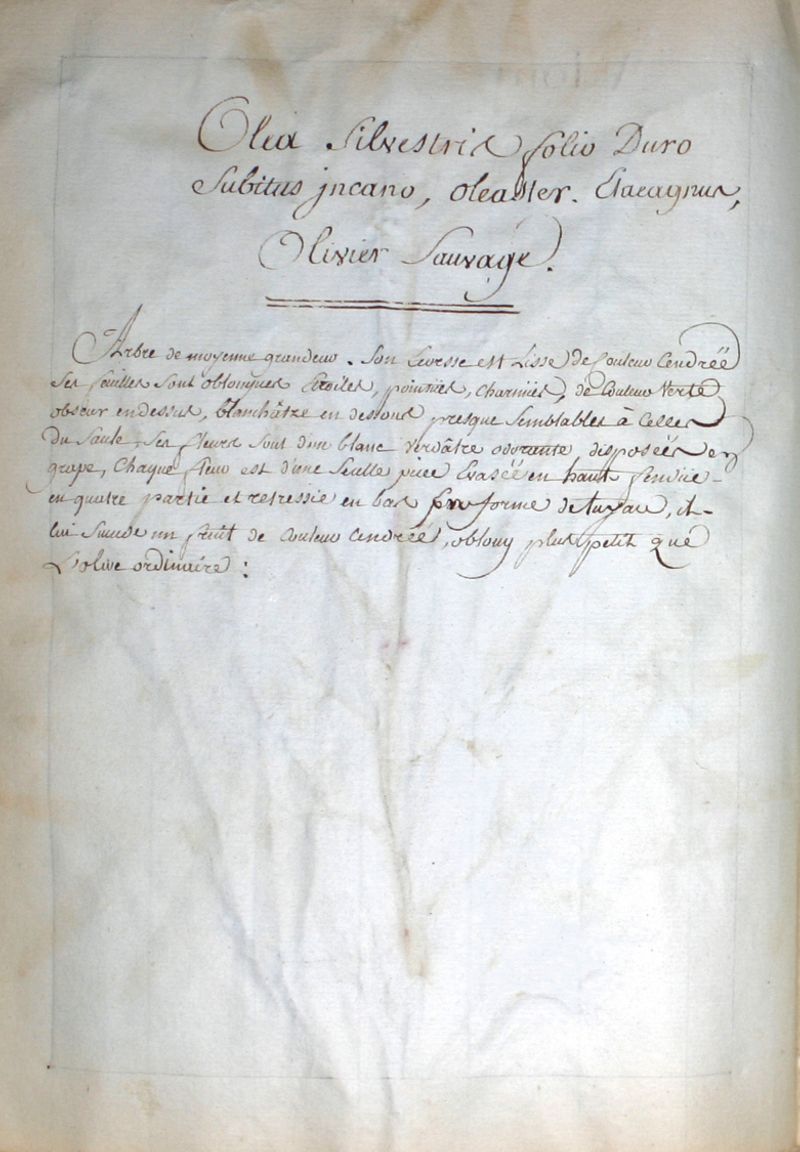 Olea Silvestris folio Duro
Subitus jncano, oleaster. Elaeagnus,
Olivier Sauvage.
Arbre de moyenne grandeur. Son Ecorsse est Lisse de Couleur Cendréé
Ses feuilles sont oblongues Etroites, pointües, charnües, de Couleur Verte
obscur endessus, blanchâtre en dessous presque semblables à Celles
du Saule, Ses fleurs sont d'un blanc verdâtre odorante, disposéés en
grape, Chaque fleur est d'une seulle piece Evaséé en haut fendüe
en quatre partie et retressie en bas forme de tuyau, il
lui succede un fruit de Couleur Cendréé, oblong plus petit que
L'olive ordinaire :